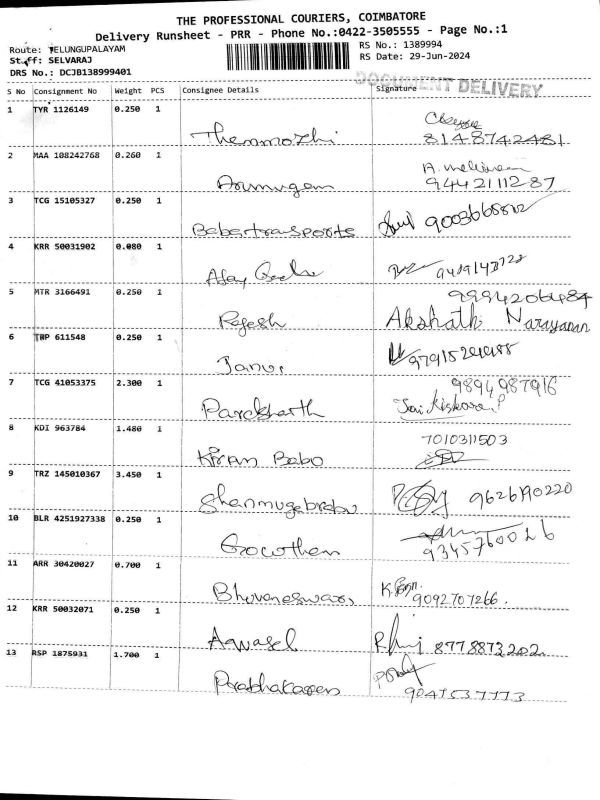 THE PROFESSIONAL COURIERS, COIMBATORE
Delivery Runsheet - PRR - Phone No.:0422-3505555 - Page No.:1
Route: TELUNGUPALAYAM
RS No.: 1389994
Staff: SELVARAJ
RS Date: 29-Jun-2024
DRS No.: DCJB138999401
DOCUMENT DELIVERY
S No Consignment No Weight PCS Consignee Details Signature
1 TYR 1126149 0.250 1
Thenmozhi 8148742481
2 MAA 108242768 0.260 1
Arumugam 9442111287
3 TCG 15105327 0.250 1
Babatransports
4 KRR 50031902 0.080 1
5 MTR 3166491 0.250 1 9994206484
Rajesh Akshath Narayanan
6 TWP 611548 0.250 1
7 TCG 41053375 2.300 1 9894987916
Jai Kishoran P
8 KDI 963784 1.480 1 7010311503
Kiran Babo
9 TRZ 145010367 3.450 1
Shanmugababu 9626190220
10 BLR 4251927338 0.250 1
9345760026
11 ARR 30420027 0.700 1
Bhuvaneswari 9092707266.
12 KRR 50032071 0.250 1
8778873202
13 RSP 1875931 1.700 1
Prabhakaren